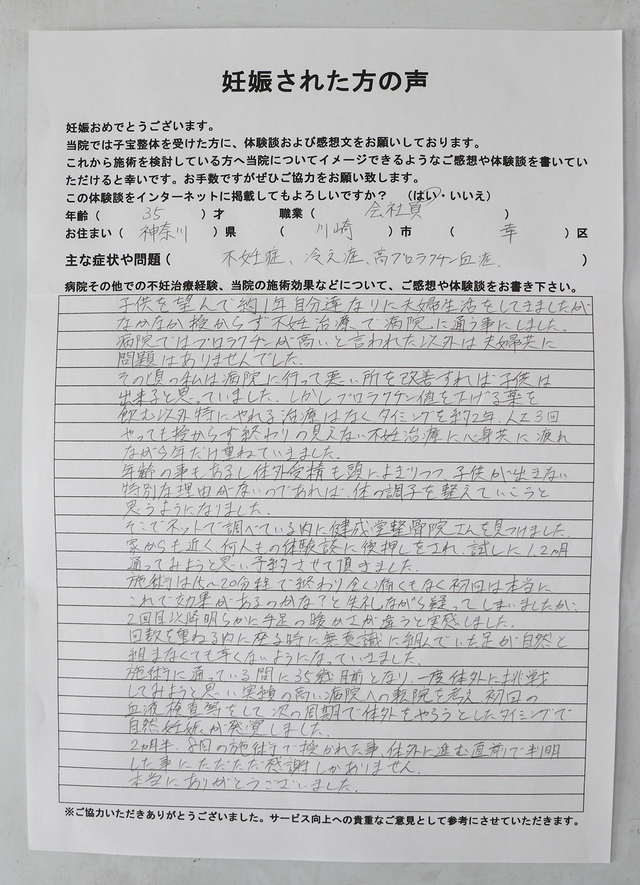 妊娠された方の声
妊娠おめでとうございます。
当院では子宝整体を受けた方に、体験談および感想文をお願いしております。
これから施術を検討している方へ当院についてイメージできるようなご感想や体験談を書いてい
ただけると幸いです。お手数ですがぜひご協力をお願い致します。
この体験談をインターネットに掲載してもよろしいですか？　（はい・いいえ）
年齢（　35　）才　職業（　会社員　）
お住まい（　神奈川　）県（　川崎　）市（　幸　）区
主な症状や問題（　不妊症、冷え症、高プロラクチン血症、　）
病院その他での不妊治療経験、当院の施術効果などについて、ご感想や体験談をお書き下さい。
子供を望んで約1年自分達なりに夫婦生活をしてきましたが
なかなか授からず不妊治療で病院に通う事にしました。
病院ではプロラクチンが高いと言われた以外は夫婦共に
問題はありませんでした。
その頃の私は病院に行って悪い所を改善すれば子供は
出来ると思っていました。しかしプロラクチン値を下げる薬を
飲む以外特にやれる治療はなくタイミングを約2年、人工3回
やっても授からず終わりの見えない不妊治療に心身共に疲れ
ながら年だけ重ねていきました。
年齢の事もあるし体外受精も頭によぎりつつ、子供が出来ない
特別な理由がないのであれば、体の調子を整えていこうと
思うようになりました。
そこでネットで調べている内に健成堂整骨院さんを見つけました。
家からも近く何人もの体験談に後押しをされ、試しに1,2ヵ月
通ってみようと思い予約させて頂きました。
施術は15～20分程で終わり全く痛くもなく初回は本当に
これで効果があるのかな？と失礼ながら疑ってしまいましたが、
2回目以降明らかに手足の暖かさが違うと実感しました。
回数を重ねる内に座る時に無意識に組んでいた足が自然と
組まなくても辛くないようになっていきました。
施術に通っている間に35歳目前となり、一度体外に挑戦
してみようと思い実績の高い病院への転院を考え、初回の
血液検査等をして次の周期で体外をやろうとしたタイミングで
自然妊娠が発覚しました。
2ヵ月半、8回の施術で授かれた事、体外に進む直前で判明
した事にただただ感謝しかありません。
本当にありがとうございました。
※ご協力いただきありがとうございました。サービス向上への貴重なご意見として参考にさせていただきます。